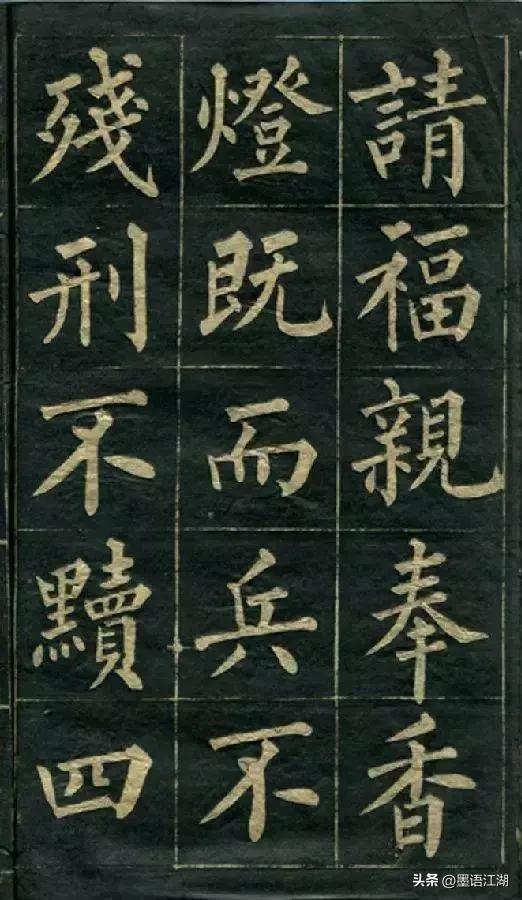 請福親奉香
燈既而兵不
残刑不黷四
头条 @墨语江湖